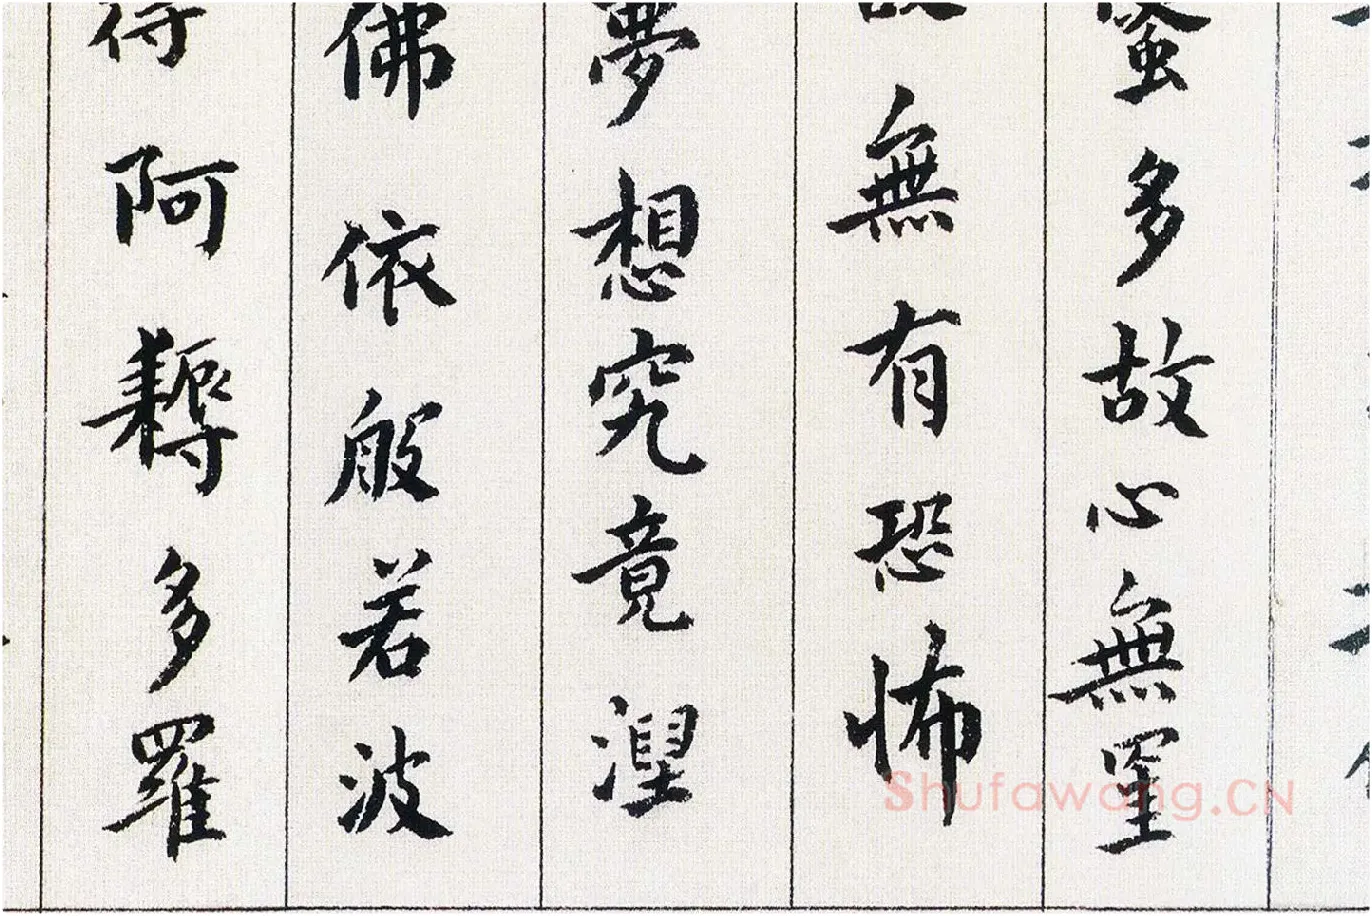 蜜多故心無罣
故無有恐怖
夢想究竟涅
佛依般若波
得阿耨多羅
Shufawang.CN